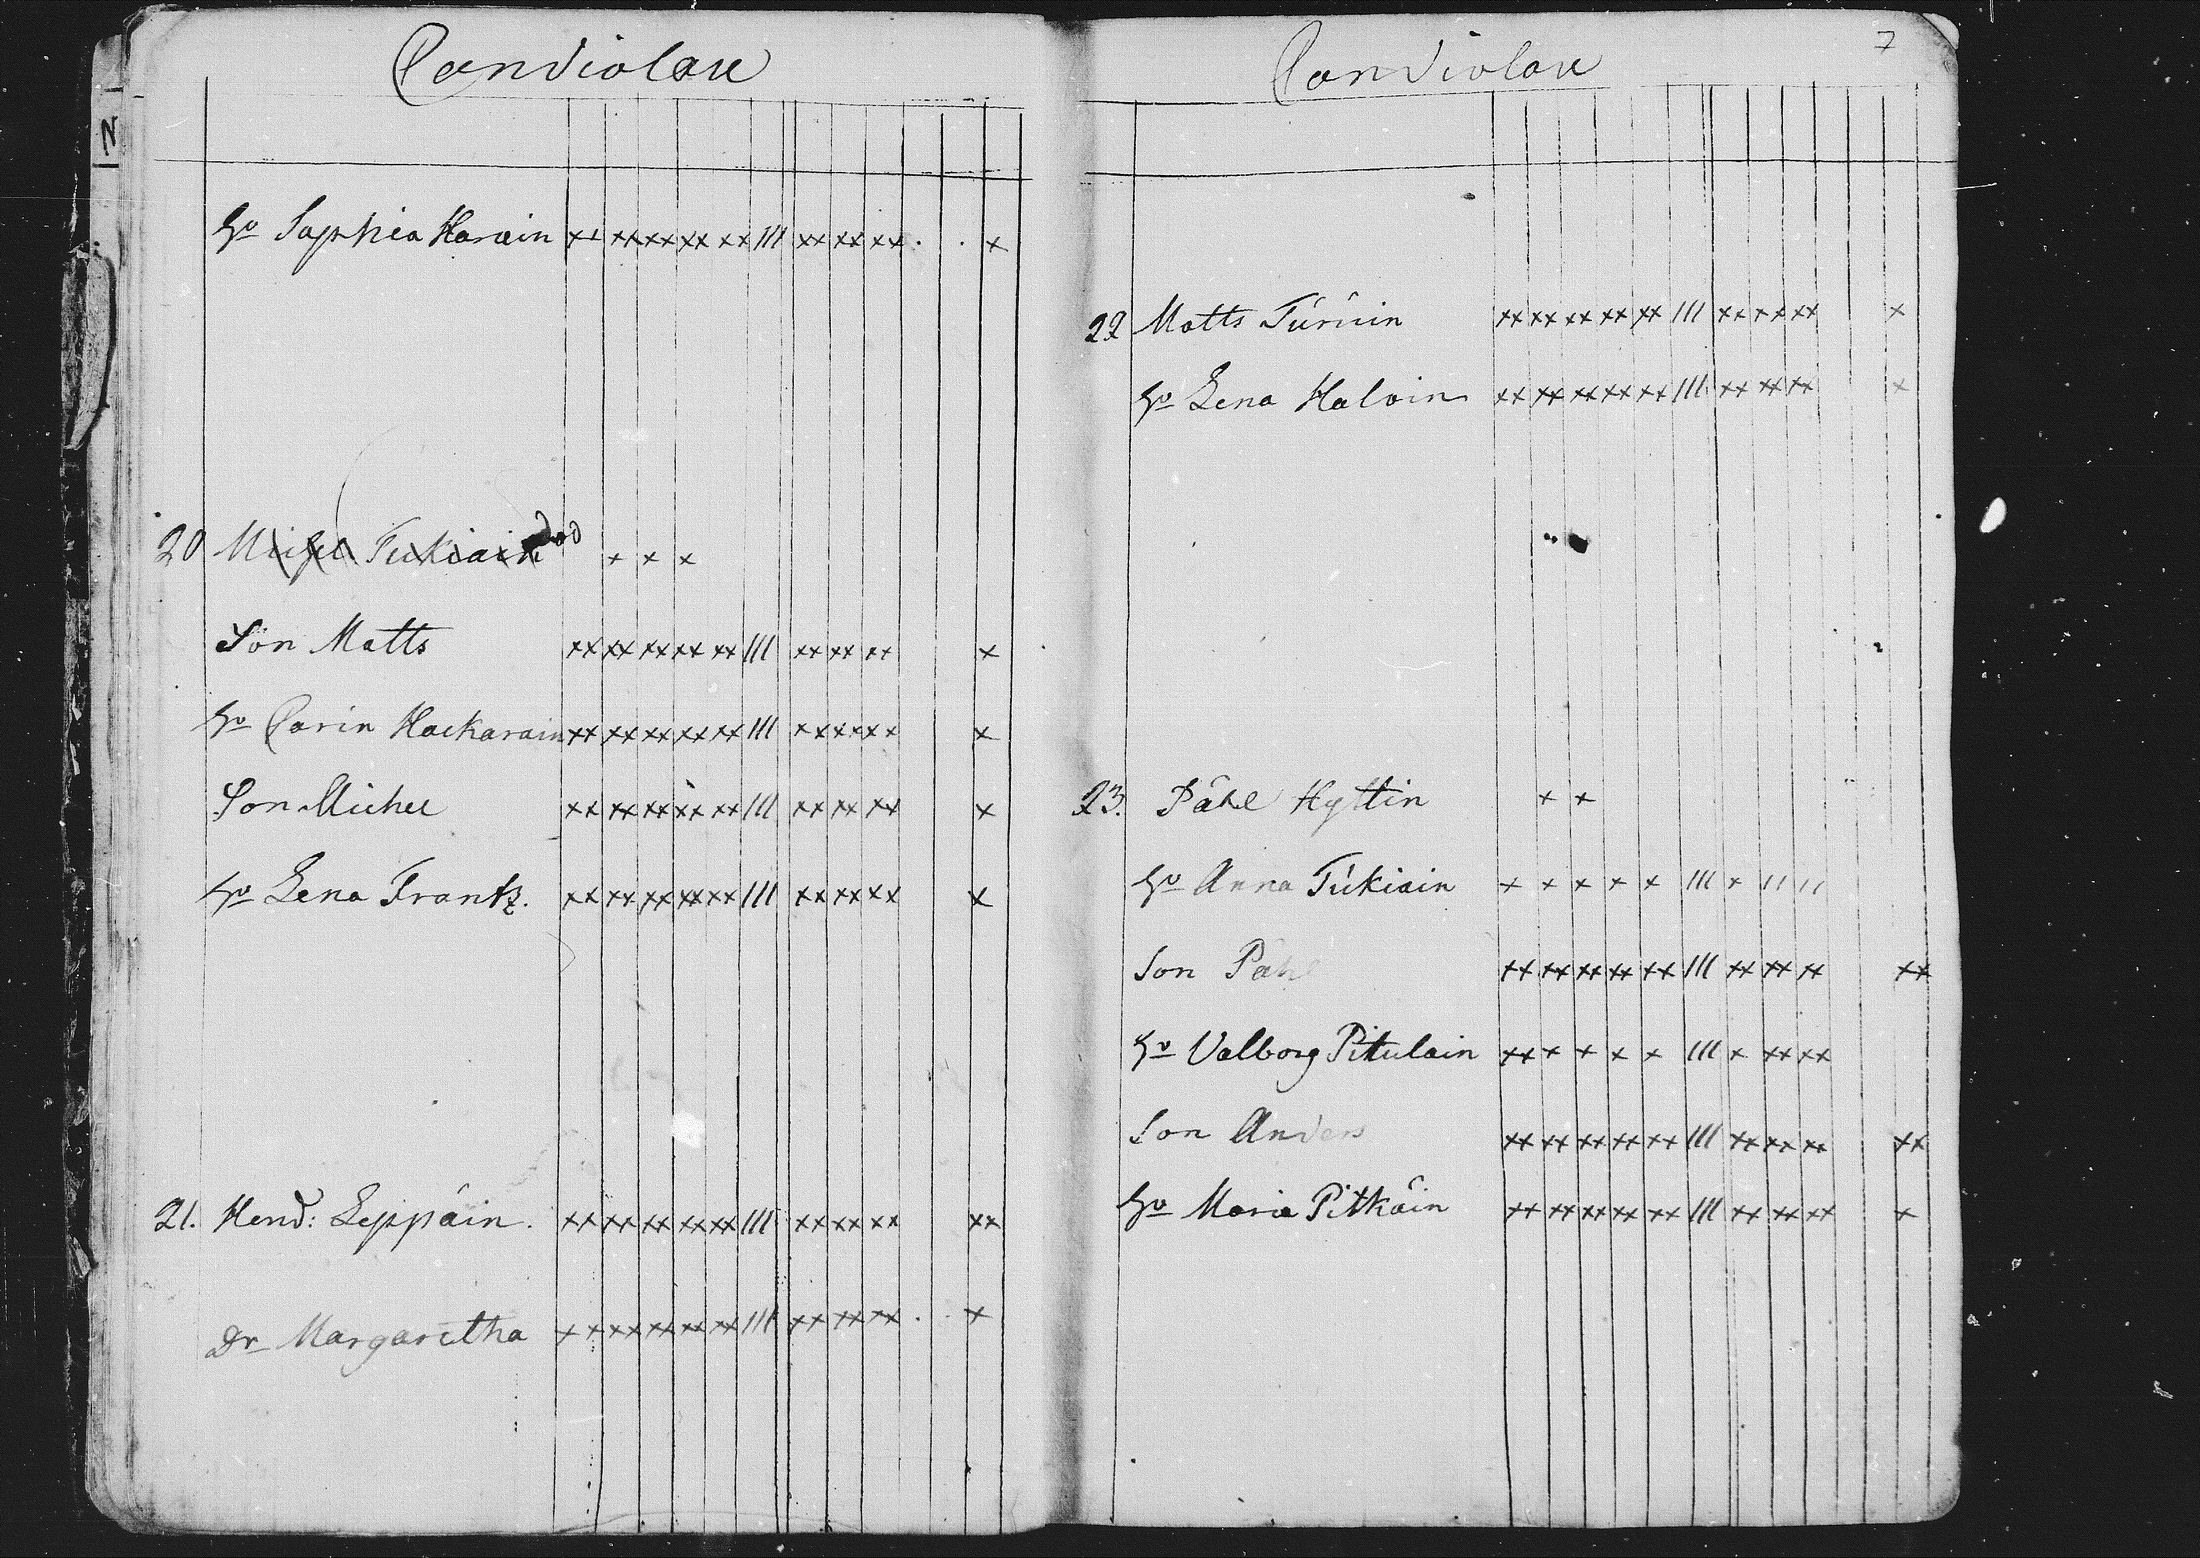 Conviolare
Hu Sophia Harain xx xx xx xx xx III xx xx xx x
20 Michel Tukiain död x x x
Son Matts xx xx xx xx xx III xx xx xx x
Hu Carin Hackarain xx xx xx xx xx III xx xx xx x
Son Michel xx xx xx xx xx III xx xx xx x
Hu Lena Frantz. xx xx xx xx xx III xx xx xx x
21. Hend: Leppäin. xx xx xx xx xx III xx xx xx xx
Dr Margaretha xx xx xx xx xx III xx xx xx x
7
Conviolare
22 Matts Turuin xx xx xx xx xx III xx xx xx x
Hu Lena Haloin xx xx xx xx xx III xx xx xx x
23. Påhl Hyttin x x
Hu Anna Tukiain x x x x x III x II II
Son Påhl xx xx xx xx xx III xx xx xx xx
Hu Valborg Pitulain xx x x x x III x xx xx
Son Anders xx xx xx xx xx III xx xx xx xx
Hu Maria Pitkäin xx xx xx xx xx III xx xx xx x
N